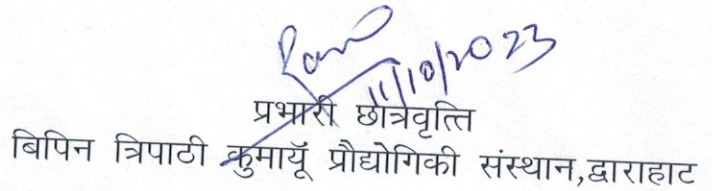 11/10/2023
प्रभारी छात्रवृत्ति
बिपिन त्रिपाठी कुमायूँ प्रौद्योगिकी संस्थान,द्वाराहाट